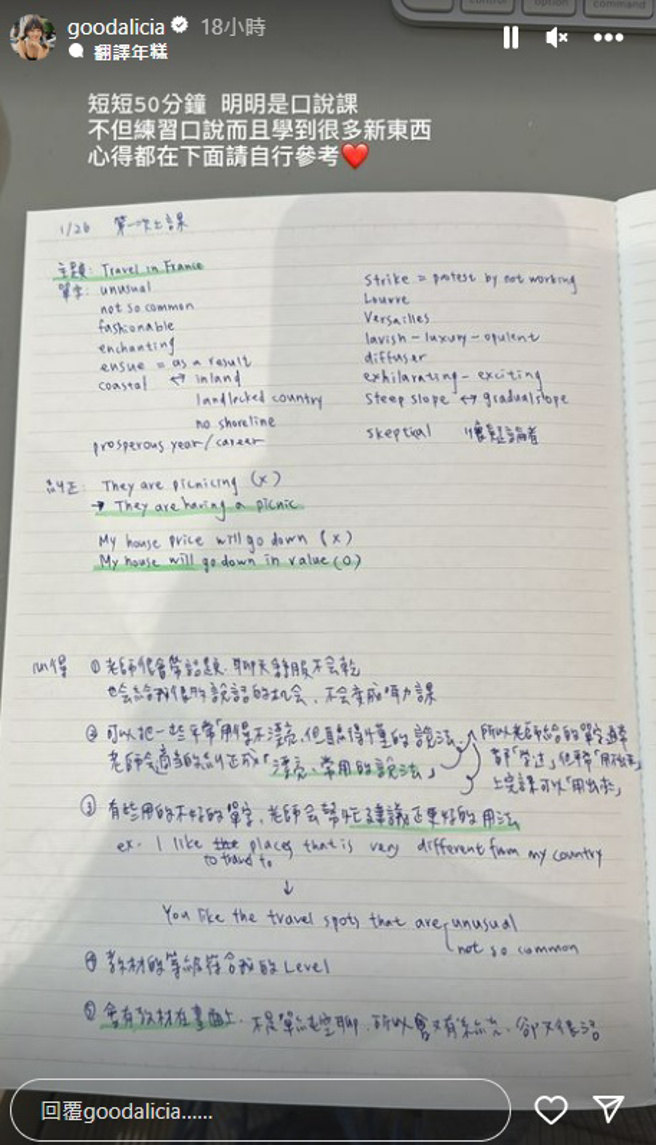 goodalicia 18小時
翻譯年糕
control option command
短短50分鐘 明明是口說課
不但練習口說而且學到很多新東西
心得都在下面請自行參考❤️
1/26 第一次上課
主題: Travel in France
單字: unusual
not so common
fashionable
enchanting
ensue = as a result
coastal ↔ inland
landlocked country
no shoreline
prosperous year/career
Strike = protest by not working
Louvre
Versailles
lavish - luxury - opulent
diffuser
exhilarating - exciting
Steep slope ↔ gradual slope
skeptical 懷疑論者
糾正: They are picnicing (x)
→ They are having a picnic
My house price will go down (x)
My house will go down in value (O)
心得 ① 老師很會帶話題、聊天舒服不会乾
也会給我很多說話的机会、不会變成听力課
② 可以把一些平常「用得不漂亮,但聽得懂的說法」
老師会適当的糾正成「漂亮、常用的說法」
所以老師給的單字通常
都「學過」但平常「用不出來」
上完課可以「用出來」
③ 有些用的不好的單字、老師会幫忙建議正更好的用法
ex. I like the places that is very different from my country
to travel to
↓
You like the travel spots that are unusual
not so common
④ 教材的等級符合我的 Level
⑤ 會有教材在畫面上、不是單純空聊、所以會又有系統、卻又很活
回覆goodalicia......